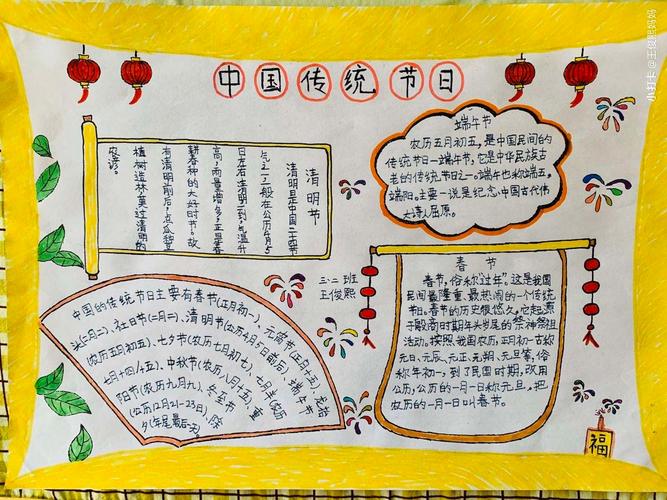 小打卡@王俊熙妈妈
中国传统节日
清明节
清明是中国二十四节
气之一,一般在公历4月5
日左右,清明一到,气温升
高,雨量增多,正是春
耕春种的大好时节。故
有清明前后,点瓜种豆
植树造林,莫过清明的
农谚。
端午节
农历五月初五,是中国民间的
传统节日—端午节,它是中华民族古
老的传统节日之一。端午也称端五、
端阳。主要一说是纪念中国古代伟
大诗人屈原。
三.二班
王俊熙
中国的传统节日主要有春节(正月初一)、元宵节(正月十五)、龙抬
头(二月二)、社日节(二月二)、清明节(公历4月5日前后)、端午节
(农历五月初五)、七夕节(农历七月初七)、七月半(农历
七月十四/十五)、中秋节(农历八月十五)、重
阳节(农历九月九)、冬至节
(公历12月21~23日)、除
夕(年尾最后一天)。
春节
春节,俗称"过年"。这是我国
民间最隆重、最热闹的一个传统
节日。春节的历史很悠久,它起源
于殷商时期年头岁尾的祭神祭祖
活动。按照我国农历,正月初一古称
元日、元辰、元正、元朔、元旦等,俗
称年初一,到了民国时期,改用
公历,公历的一月一日称元旦,把
农历的一月一日叫春节。
福